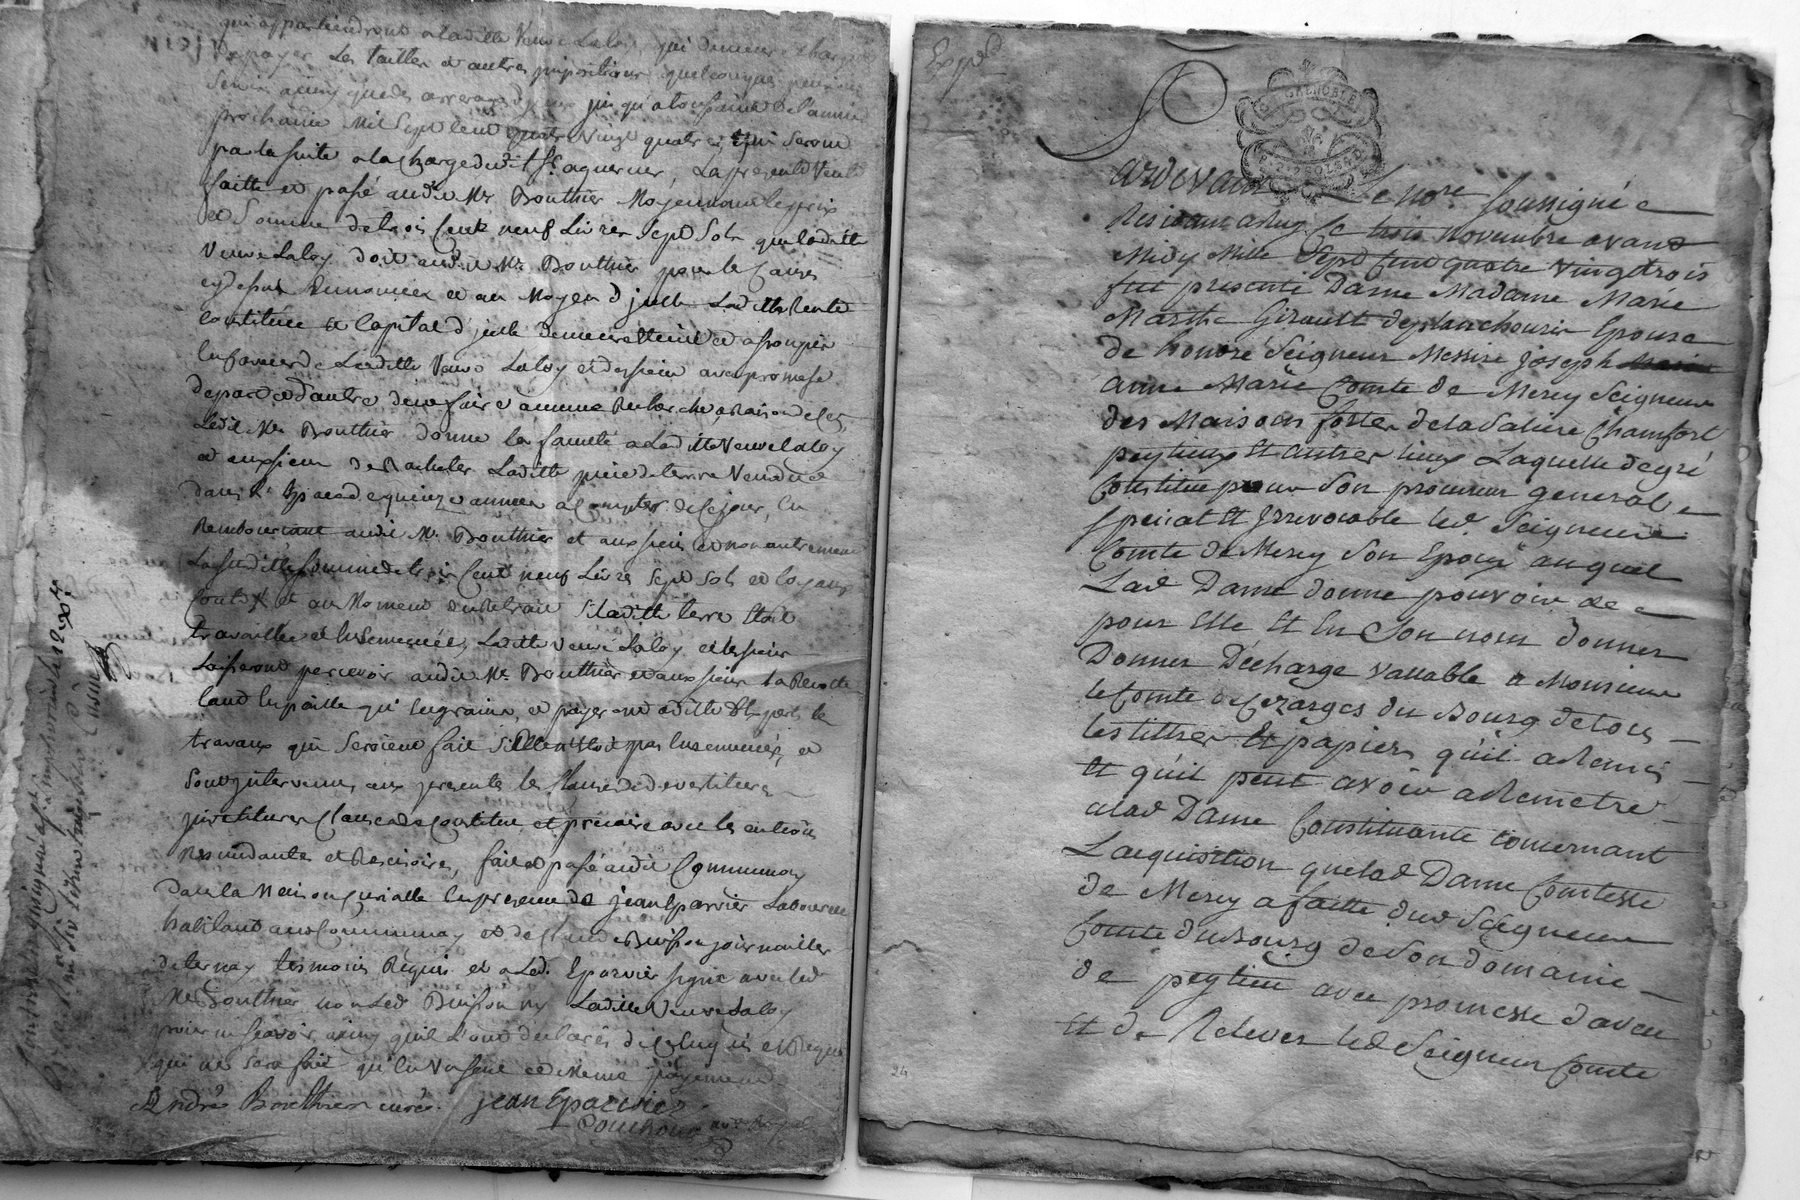 qui appartiendront a laditte Veuve Laloy, qui demeure chargée
de payer les tailles et autres impositions quelconques
jusqu'a la toussaint de l'année
prochaine Mil Sept Cent quatre Vingt quatre, qui seront
par la suite a la charge dudit Sr aquereur, La presente Vente
faitte et passé audit Mr Bouthier Moyennant le prix
et Somme de trois Cent neuf Livres Sept Sols que laditte
Veuve Laloy doit audit Mr Bouthier pour les Causes
cy dessus Ennoncées et au Moyen d'jcelle Laditte Rente
constituée et Capital d'jcelle demeure etteint et assoupie
En faveur de Laditte Veuve Laloy et des siens avec promesse
de part et d'autre de ne faire aucune Recherche, a Raison de ce,
Ledit Mr Bouthier donne la faculté a Laditte Veuve Laloy
et aux siens de Racheter Laditte piece de terre Vendue
dans l'Espace de quinze années a Compter de Ce jour, En
Remboursant audit Mr Bouthier et aux siens et non autrement
La susditte somme de trois Cent neuf Livres Sept Sols et loyaux
Couts et au Moment du Retrait si laditte terre Etoit
travaillée et Ensemencée, Laditte Veuve Laloy et les siens
Laisseront percevoir audit Mr Bouthier et aux siens La Recolte
tant En paille qu'En graine, et payeront
travaux qui seroient fait si Elle n'Etoit pas Ensemencée, et
Sont jntervenues aux presentes les Clauses de devestitures
jnvestitures Clause de Constitut et précaire avec les autres
et Rescisoires, fait et passé audit Communay
Dans la Maison Curialle En presence de jean Eparvier Laboureur
habitant audit Communay et de Claude Buisson journailler
de ternay temoins Requis et a Led. Eparvier signé avec led
Mr Bouthier non Led Buisson ny Laditte Veuve Laloy
pour ne sçavoir ainsy qu'il L'ont declarés de Ce Enquis et Requis
qui ne sera fait qu'En Un seul et Meme payement
André Bouthier curé. jean Eparvier
Expd
GRENOBLE
Pardevant Le nore soussigné
Le trois novembre avant
Midy Mille Sept Cent quatre vingt trois
fut presente Dame Madame Marie
Marthe Girault deplanchourie Epouse
de honoré Seigneur Messire joseph
anne Marie Comte de Mercy Seigneur
des Maisons fortes de la Saliere Chamfort
peytieux Et autres lieux Laquelle de gré
Constitue pour Son procureur general
special Et jrrevocable led Seigneur
Comte de Mercy Son Epoux auquel
Lad Dame donne pouvoir de
pour Elle Et En Son nom donner
Donner Decharge vallable a Monsieur
le Comte de Cezarges du Bourg de tous
les tittres Et papiers quil a Remis
Et quil peut avoir a Remetre
a lad Dame Constituante concernant
L'acquisition que lad Dame Comtesse
de Mercy a faitte dud Seigneur
Comte du Bourg de Son domaine
de peytieu avec promesse d'aveu
Et de Relever led Seigneur Comte
24